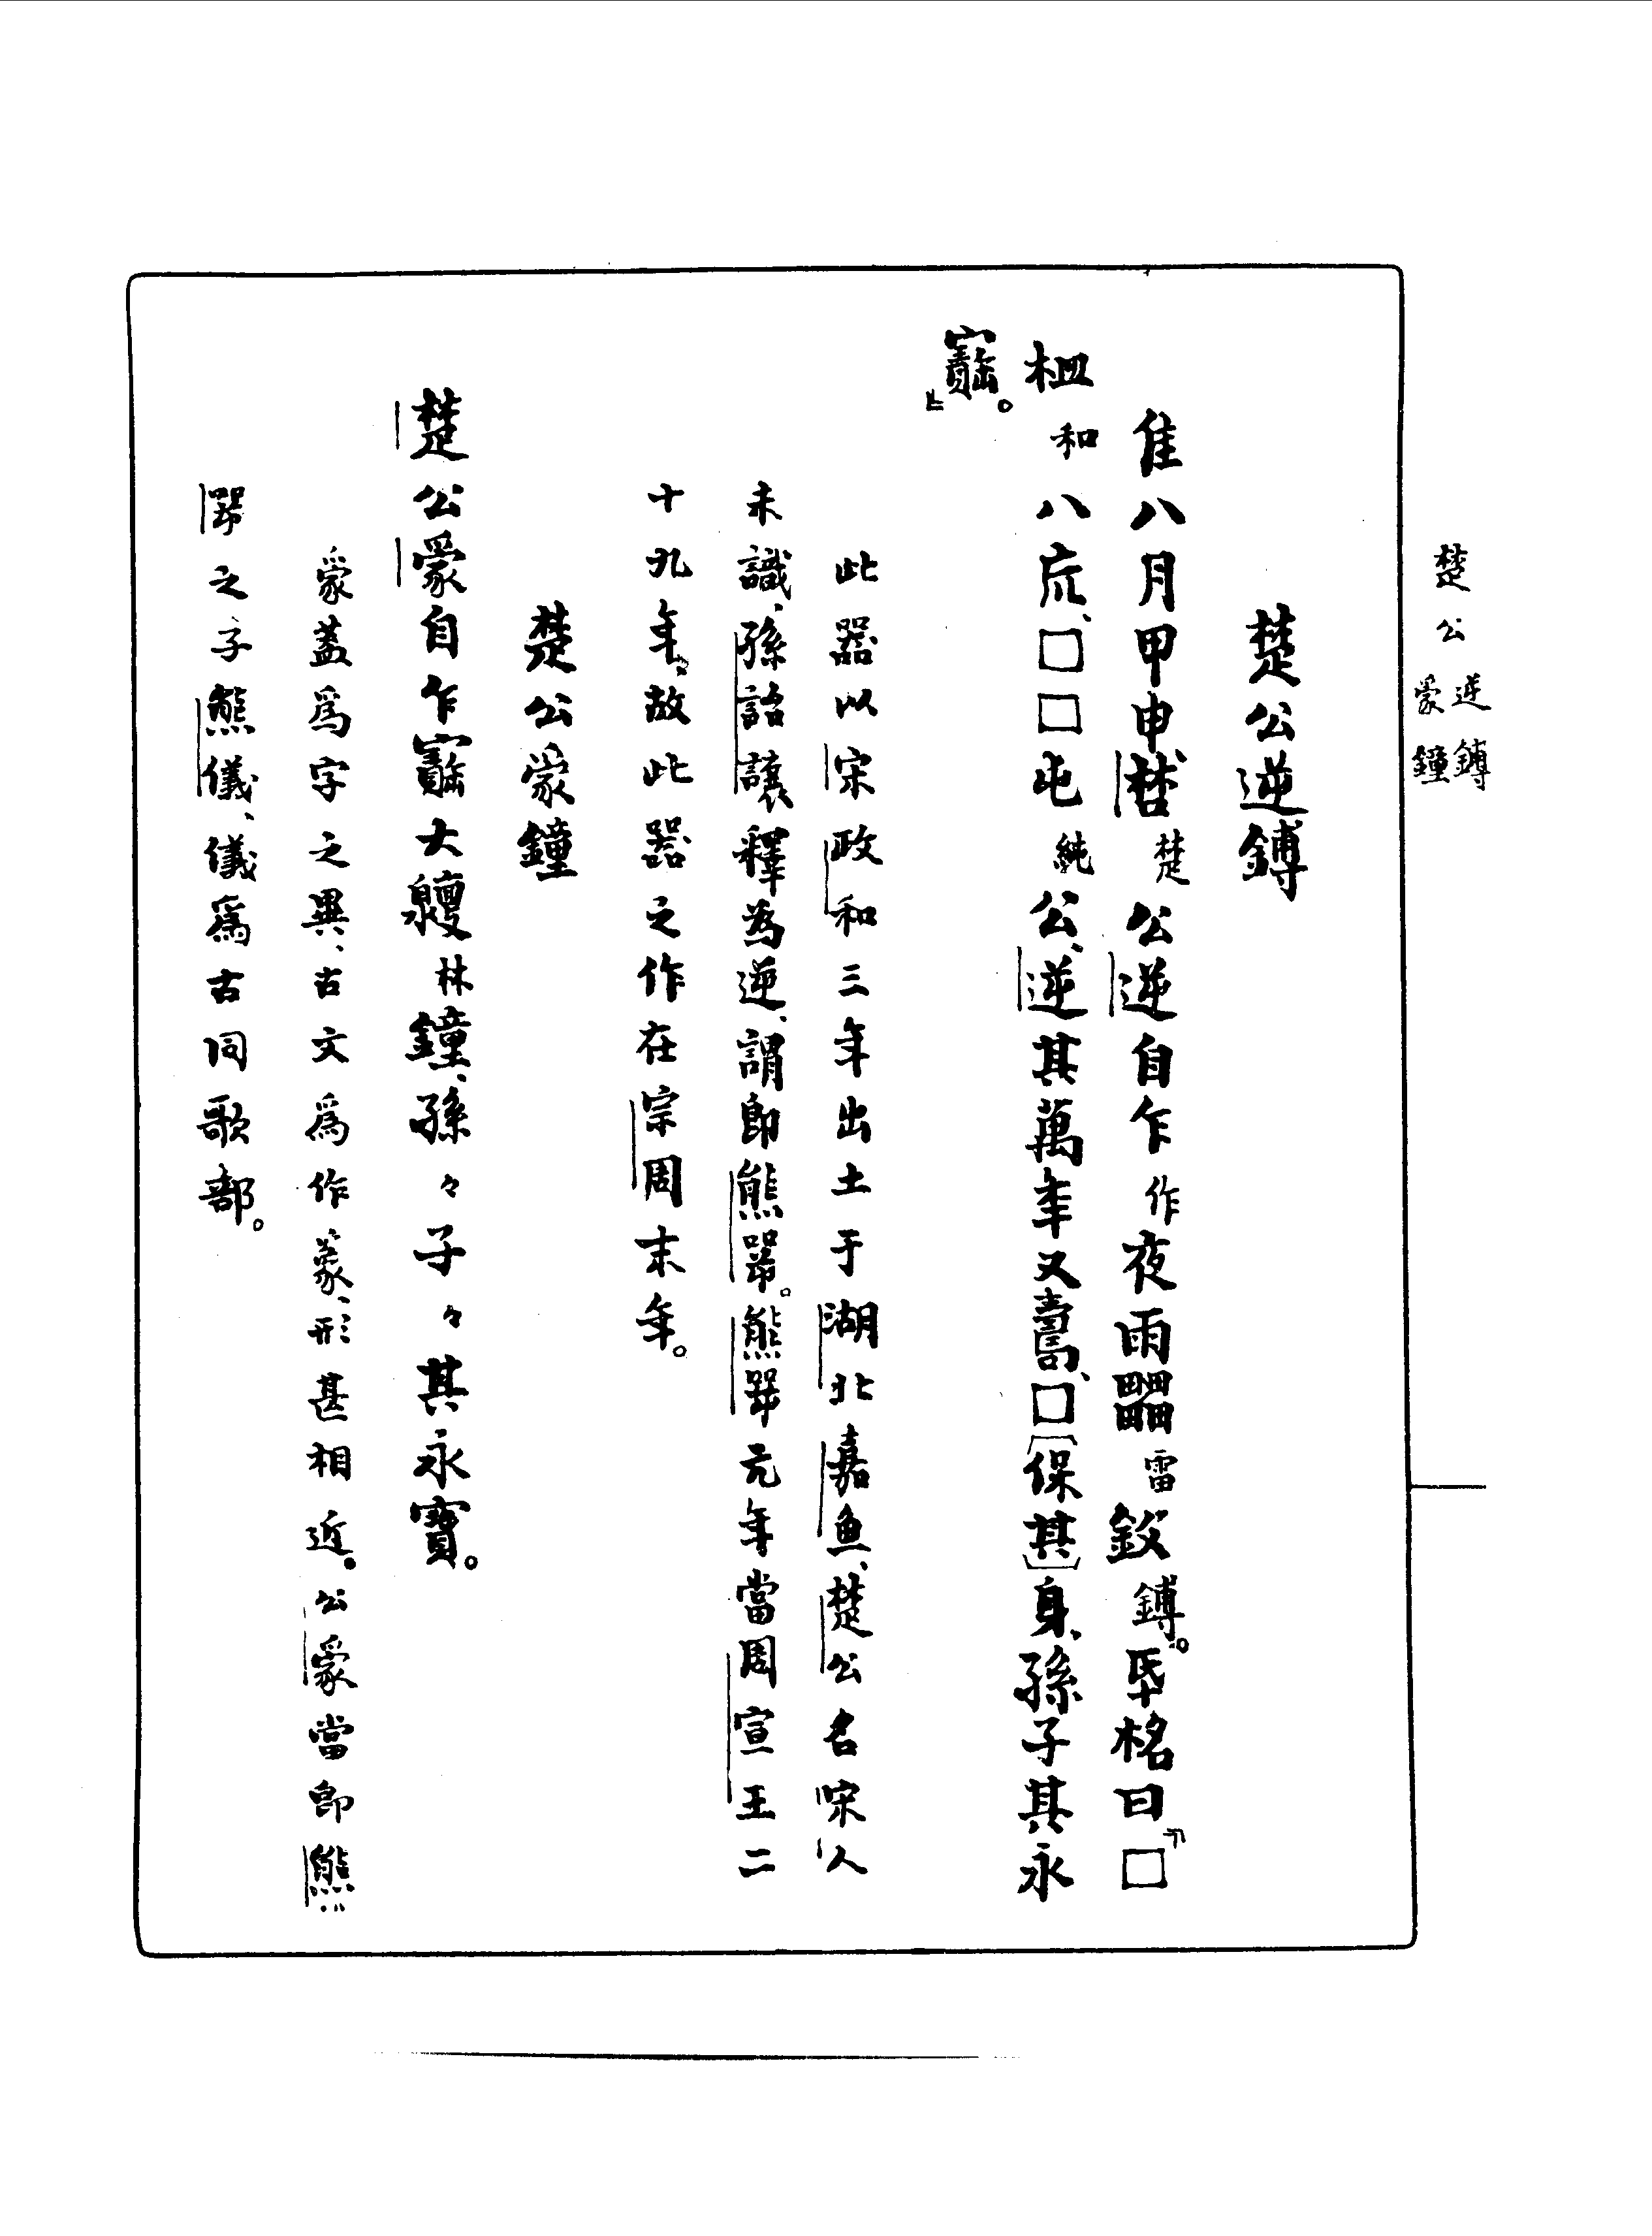 楚公
逆鎛
鐘
楚公逆鎛
隹八月甲申楚公逆自乍作夜雨雷鎛。氒格曰『□
和八□□屯純公、逆其萬年又壽、□〔保其〕身、孫子其永
寶。』
此器以宋政和三年出土于湖北嘉魚、楚公名宋人
未識、孫詒讓釋為逆、謂即熊咢。熊咢元年當周宣王二
十九年、故此器之作在宗周末年。
楚公鐘
楚公自乍寶大林鐘、孫々子々其永寶。
蓋爲字之異、古文爲作、形甚相近。公當即熊
咢之子熊儀、儀爲古同歌部。